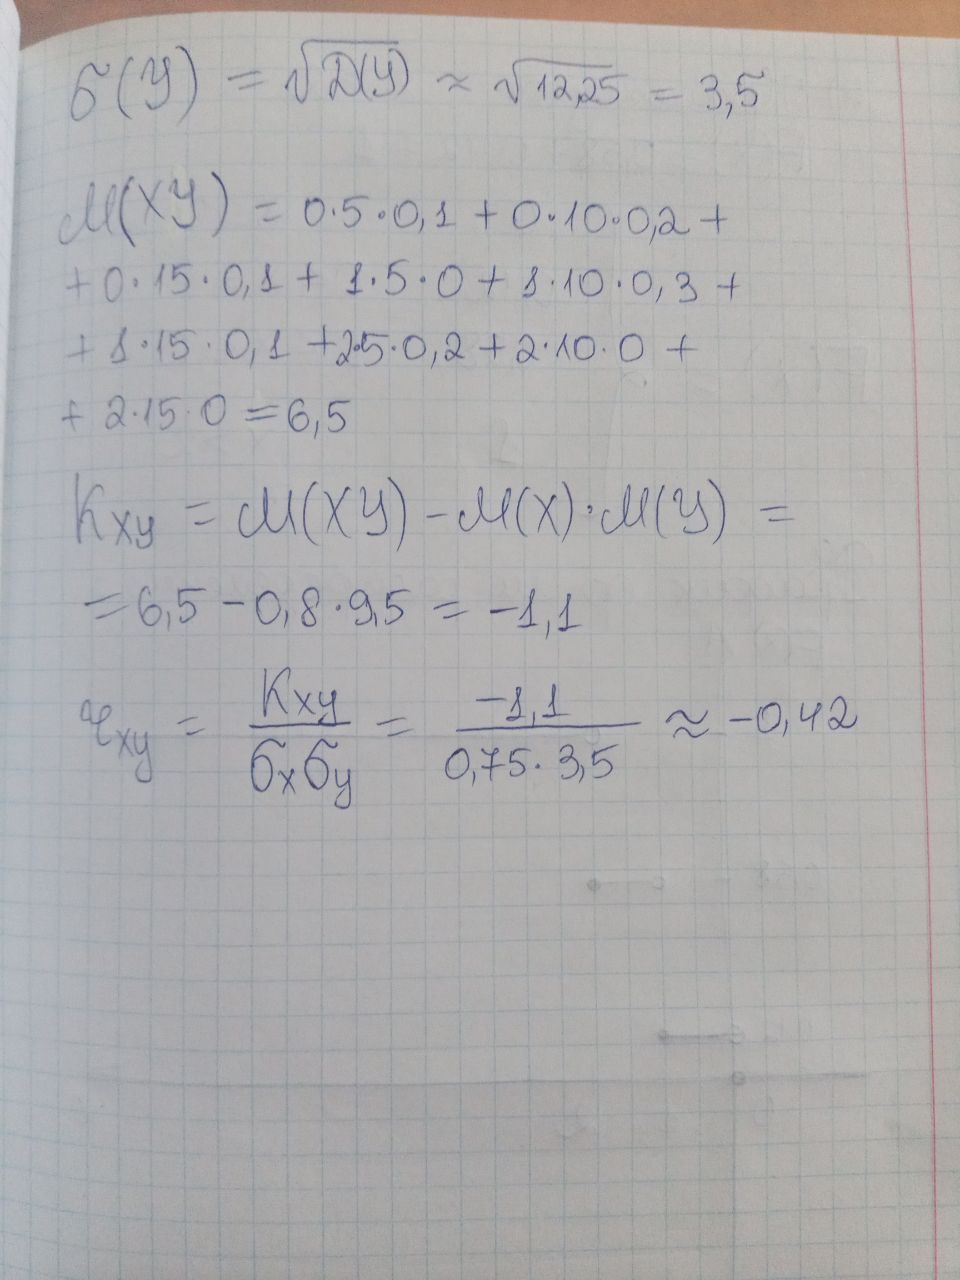 σ(У) = √Д(У) ≈ √12,25 = 3,5
М(ХУ) = 0·5·0,1 + 0·10·0,2 +
+ 0·15·0,1 + 1·5·0 + 1·10·0,3 +
+ 1·15·0,1 + 2·5·0,2 + 2·10·0 +
+ 2·15·0 = 6,5
Kxy = М(ХУ) - М(Х)·М(У) =
= 6,5 - 0,8·9,5 = -1,1
rxy = Kxy / σxσy = -1,1 / 0,75·3,5 ≈ -0,42